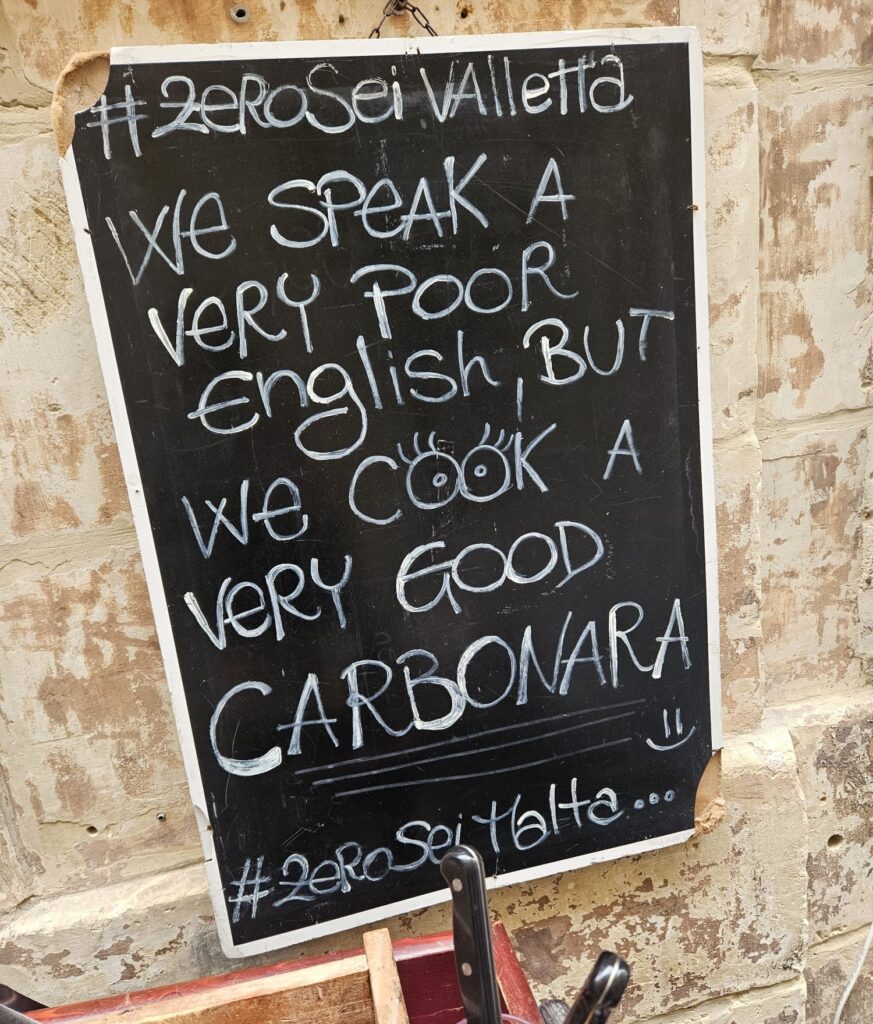 #ZeRoSei VAlletta
We SPeAK A
VeRY POOR
English, BUT
We COOK A
VeRY GOOD
CARBONARA
=)
#ZeRoSei Malta...